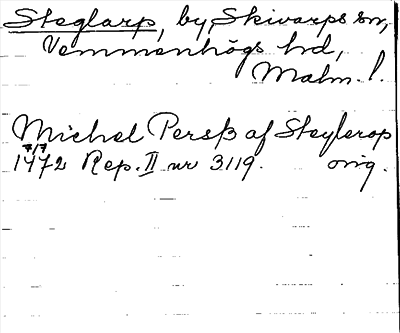 Steglarp, by Skivarps sn,
Vemmenhögs hd,
Malm. l.
Michel Persß af Steylerop
7/7
1472 Rep. II nr 3119. orig.